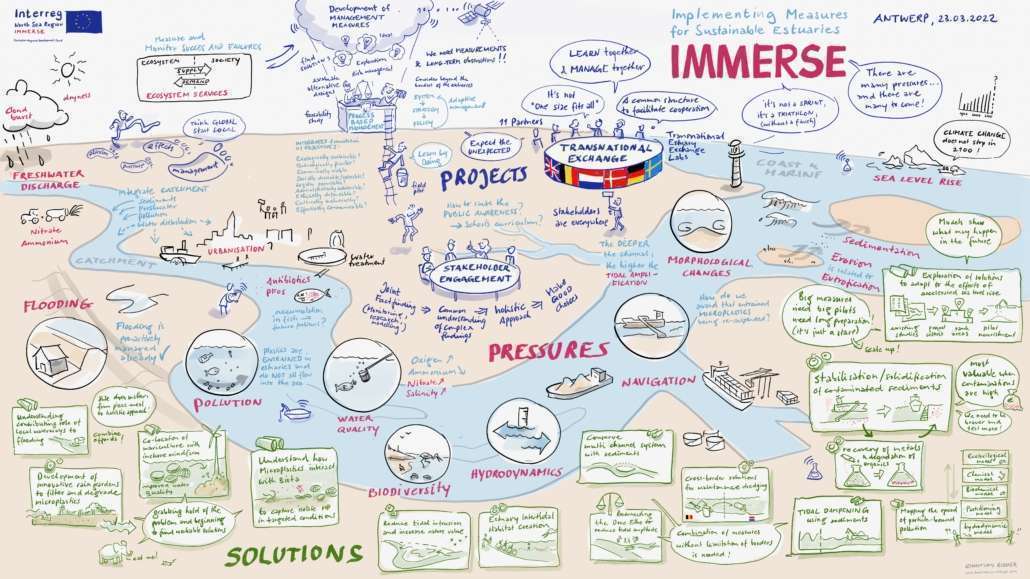 Interreg
North Sea Region
IMMERSE
European Regional Development Fund
EUROPEAN UNION
Measure and
Monitor SUCCESS AND FAILURES
ECOSYSTEM
SOCIETY
SUPPLY
DEMAND
ECOSYSTEM SERVICES
Cloud
burst
dryness
Development of
MANAGEMENT
MEASURES
find
solutions
Evaluate
alternative
designs
feasibility
study
Exploration
Risk management
PROCESS
BASED
MANAGEMENT
We need MEASUREMENTS
& LONG-TERM observations!!
Consider beyond the
borders of the estuaries
SYSTEM
STRATEGY
& POLICY
Adaptive
management
Implementing Measures
for Sustainable Estuaries
IMMERSE
ANTWERP, 23.03.2022
LEARN together
& MANAGE together
It's not
"One size fits all"
A common structure
to facilitate cooperation
11 Partners
TRANSNATIONAL
EXCHANGE
Transnational
Estuary
Exchange
Labs
Expect the
UNEXPECTED
There are
many pressures...
and there are
many to come!
it's not a SPRINT,
it's a TRIATHLON,
CLIMATE CHANGE
does not stop in
2100!
SEA LEVEL RISE
COAST &
MARINE
Think GLOBAL
start LOCAL
effects
management
FRESHWATER
DISCHARGE
Learn by
Doing
PROJECTS
field
How to raise the
PUBLIC AWARENESS?
→ Schools curriculum?
Stakeholders
are everywhere
Integrate CATCHMENT
Sediments
Freshwater
Pollution
Water distribution
Nitrate
Ammonium
URBANISATION
Water
treatment
CATCHMENT
STAKEHOLDER
ENGAGEMENT
Joint
Fact finding
(Monitoring,
research,
modelling)
Common
understanding
of complex
findings
holistic
Approach
Make
GOOD
choices
The DEEPER
the channel,
the higher the
TIDAL AMPLI-
FICATION
MORPHOLOGICAL
CHANGES
Sedimentation
Erosion
is related to
Eutrofication
Models show
what may happen
in the future
Exploration of solutions
to adapt to the effects of
accelerated sea level rise
existing
studies
pilot
nourishment
FLOODING
Flooding is
proactively
managed
already
Antibiotics
PFOS
accumulation
in fish → a
future problem?
POLLUTION
Plastics are
ENTRAINED in
estuaries and
do NOT all flow
into the sea
WATER
QUALITY
Oxigen
Ammonium
Nitrate
Salinity
PRESSURES
How do we
avoid that entrained
MICROPLASTICS
being re-suspended?
NAVIGATION
Big measures
need big pilots
need long preparation
(it's just a start)
Scale up!
Stabilisation/Solidification
of contaminated sediments
most
valuable when
contaminations
are high
We need to be
braver and
test more!
recovery of metals
& degradation of
organics
Ecological
model
Chemical
model
Biochemical
model
Partitioning
model
hydrodynamic
model
Mapping the spread
of particle-bound
pollution
TIDAL DAMPENING
using sediments
BIODIVERSITY
HYDRODYNAMICS
Compare
multi channel system
with sediments
Cross-border solutions
for maintenance dredging
Combination of measures
without limitation of borders
is needed!
Reduce tidal intrusion
and increase nature value
Estuary intertidal
habitat creation
Understanding
contributing role of
local waterways to
flooding
Combine
efforts
Co-location of
mariculture with
inshore windfarm
improved water
quality
Understand how
Microplastics interact
with Biota
to capture noble up
in targeted conditions
Development of
innovative rain gardens
to filter and degrade
microplastics
Grabbing hold of the
problem and beginning
to find workable solutions
eat me!
SOLUTIONS